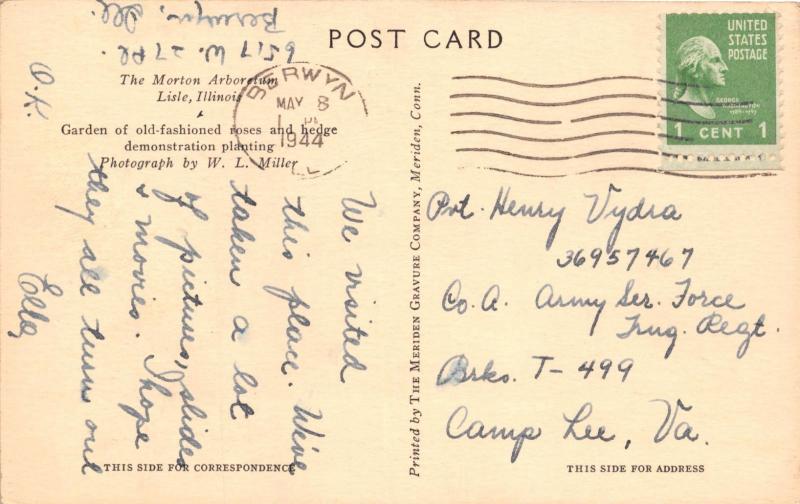 POST CARD
The Morton Arboretum
Lisle, Illinois
Garden of old-fashioned roses and hedge
demonstration planting
Photograph by W. L. Miller
6517 W. 27 Pl.
Berwyn, Ill.
We visited
this place. We've
taken a lot
of pictures, slides
& movies. I hope
they all turn out
O.K
Ella
THIS SIDE FOR CORRESPONDENCE
Printed by THE MERIDEN GRAVURE COMPANY, Meriden, Conn.
BERWYN
MAY 8
1 PM
1944
ILL.
UNITED
STATES
POSTAGE
GEORGE
WASHINGTON
1789-1797
1 CENT 1
Pvt. Henry Vydra
36957467
Co. A. Army Ser. Force
Trng. Regt.
Brks. T-499
Camp Lee, Va.
THIS SIDE FOR ADDRESS